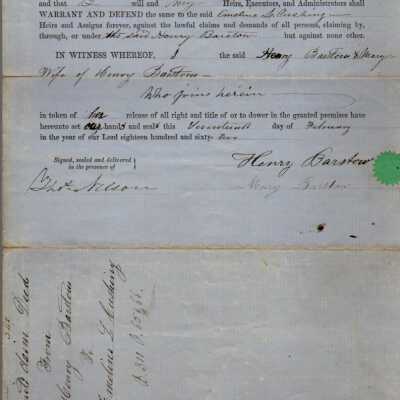 and that I will and my Heirs, Executors, and Administrators shall
WARRANT AND DEFEND the same to the said Emeline L Cushing
Heirs and Assigns forever, against the lawful claims and demands of all persons, claiming by,
through, or under the said Henry Barstow but against none other.
IN WITNESS WHEREOF, I the said Henry Barstow & Mary
Wife of Henry Barstow
Who joins herein
in token of her release of all right and title of or to dower in the granted premises have
hereunto set our hands and seals this day of February
in the year of our Lord eighteen hundred and sixty
Signed, sealed and delivered
in the presence of
Henry Barstow
Thos. Nelson
Mary Barstow
Quit Claim Deed
From
Henry Barstow
To
Emeline L Cushing